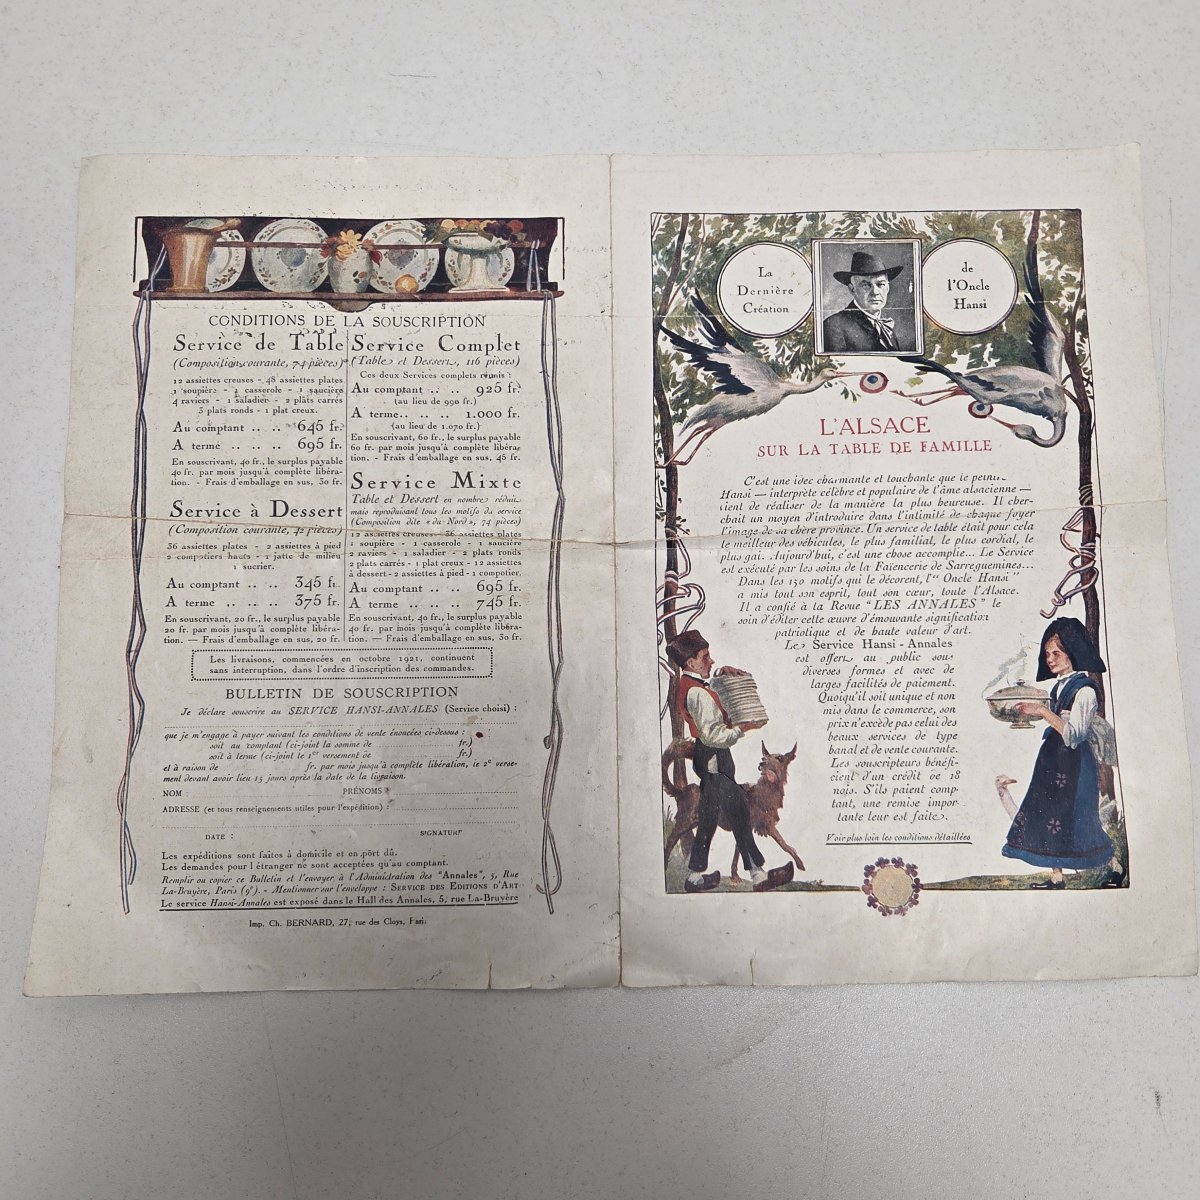 CONDITIONS DE LA SOUSCRIPTION
Service de Table
(Composition courante, 74 pièces)
12 assiettes creuses - 48 assiettes plates
1 soupière - 1 casserole - 1 saucière
4 raviers - 1 saladier - 2 plats carrés
3 plats ronds - 1 plat creux.
Au comptant .. .. 645 fr.
A terme .. .. .. 695 fr.
En souscrivant, 40 fr., le surplus payable
40 fr. par mois jusqu'à complète libéra-
tion. - Frais d'emballage en sus, 30 fr.
Service à Dessert
(Composition courante, 42 pièces)
36 assiettes plates - 2 assiettes à pied
2 compotiers hauts - 1 jatte de milieu
1 sucrier.
Au comptant .. .. 345 fr.
A terme .. .. .. 375 fr.
En souscrivant, 20 fr., le surplus payable
20 fr. par mois jusqu'à complète libéra-
tion. — Frais d'emballage en sus, 20 fr.
Service Complet
(Table et Dessert, 116 pièces)
Ces deux Services complets réunis :
Au comptant .. .. 925 fr.
(au lieu de 990 fr.)
A terme.. .. .. 1.000 fr.
(au lieu de 1.070 fr.)
En souscrivant, 60 fr., le surplus payable
60 fr. par mois jusqu'à complète libéra-
tion. - Frais d'emballage en sus, 45 fr.
Service Mixte
Table et Dessert en nombre réduit
mais reproduisant tous les motifs du service
(Composition dite « du Nord », 74 pièces)
12 assiettes creuses - 36 assiettes plates
1 soupière - 1 casserole - 1 saucière
2 raviers - 1 saladier - 2 plats ronds
2 plats carrés - 1 plat creux - 12 assiettes
à dessert - 2 assiettes à pied - 1 compotier.
Au comptant .. .. 695 fr.
A terme .. .. .. 745 fr.
En souscrivant, 40 fr., le surplus payable
40 fr. par mois jusqu'à complète libéra-
tion. — Frais d'emballage en sus, 30 fr.
Les livraisons, commencées en octobre 1921, continuent
sans interruption, dans l'ordre d'inscription des commandes.
BULLETIN DE SOUSCRIPTION
Je déclare souscrire au SERVICE HANSI-ANNALES (Service choisi) :
que je m'engage à payer suivant les conditions de vente énoncées ci-dessus :
soit au comptant (ci-joint la somme de fr.)
soit à terme (ci-joint le 1er versement de fr.)
et à raison de fr. par mois jusqu'à complète libération, le 2e verse-
ment devant avoir lieu 15 jours après la date de la livraison.
NOM PRÉNOMS
ADRESSE (et tous renseignements utiles pour l'expédition) :
DATE : SIGNATURE
Les expéditions sont faites à domicile et en port dû.
Les demandes pour l'étranger ne sont acceptées qu'au comptant.
Remplir ou copier ce Bulletin et l'envoyer à l'Administration des "Annales", 5, Rue
La-Bruyère, Paris (9e). - Mentionner sur l'enveloppe : SERVICE DES EDITIONS D'ART
Le service Hansi-Annales est exposé dans le Hall des Annales, 5, rue La-Bruyère
Imp. Ch. BERNARD, 27, rue des Cloys, Paris
La
Dernière
Création
de
l'Oncle
Hansi
L'ALSACE
SUR LA TABLE DE FAMILLE
C'est une idée charmante et touchante que le peintre
Hansi — interprète célèbre et populaire de l'âme alsacienne —
vient de réaliser de la manière la plus heureuse. Il cher-
chait un moyen d'introduire dans l'intimité de chaque foyer
l'image de sa chère province. Un service de table était pour cela
le meilleur des véhicules, le plus familial, le plus cordial, le
plus gai. Aujourd'hui, c'est une chose accomplie... Le Service
est exécuté par les soins de la Faïencerie de Sarreguemines...
Dans les 150 motifs qui le décorent, l'" Oncle Hansi "
a mis tout son esprit, tout son cœur, toute l'Alsace.
Il a confié à la Revue "LES ANNALES" le
soin d'éditer cette œuvre d'émouvante signification
patriotique et de haute valeur d'art.
Le Service Hansi-Annales
est offert au public sous
diverses formes et avec de
larges facilités de paiement.
Quoiqu'il soit unique et non
mis dans le commerce, son
prix n'excède pas celui des
beaux services de type
banal et de vente courante.
Les souscripteurs bénéfi-
cient d'un crédit de 18
mois. S'ils paient comp-
tant, une remise impor-
tante leur est faite.
Voir plus loin les conditions détaillées